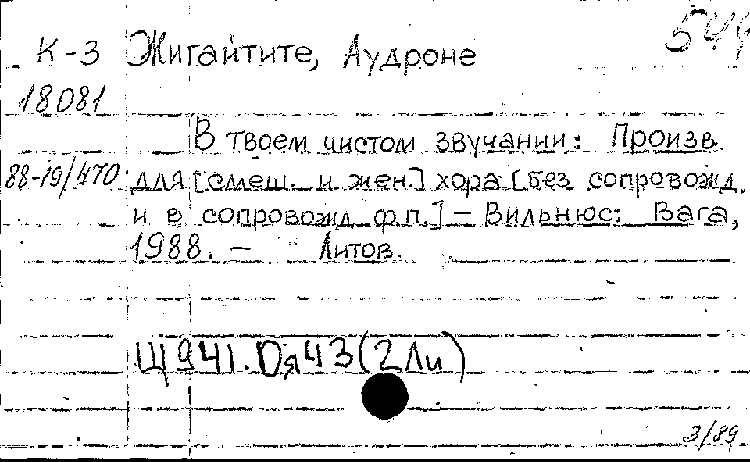 544
К-3 Жигайтите, Аудроне
18081
В твоем чистом звучании: Произв.
88-19/470 для [смеш. и жен.] хора [без сопровожд.
и в сопровожд. ф.п.] – Вильнюс: Вага,
1988. – Литов.
Щ941.Оя43(2Ли)
3/89